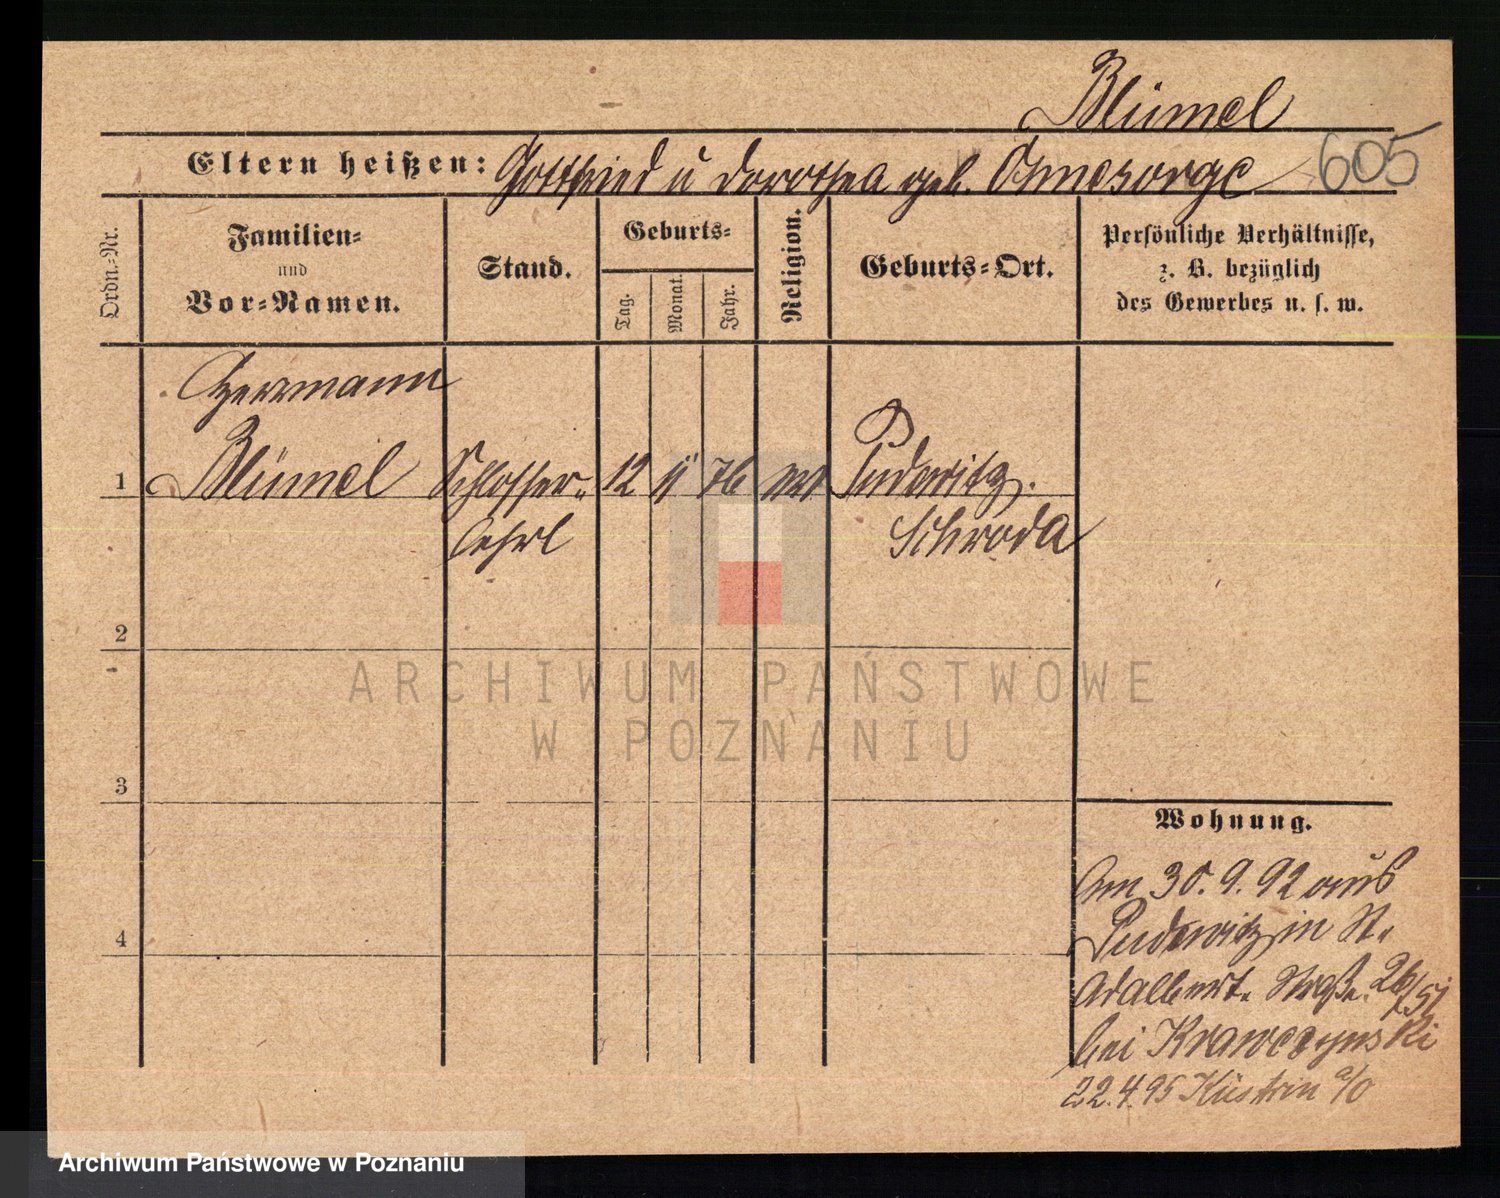 Blümel
Eltern heißen: Gottfried u Dorothea geb. Ohnesorge 605
Ordn.-Nr.
Familien-
und
Vor-Namen.
Stand.
Geburts-
Tag.
Monat.
Jahr.
Religion.
Geburts-Ort.
Persönliche Verhältnisse,
z. B. bezüglich
des Gewerbes u. s. w.
Herrmann
1 Blümel Schlosser- 12 76 Pudewitz.
lehrl Schroda
2
3
4
Wohnung.
Am 30.9.92 aus
Pudewitz in St.
Adalbert. Straße. 26/51
bei Krawczynski
22.4.95 Küstrin a/O
ARCHIWUM PAŃSTWOWE
W POZNANIU
Archiwum Państwowe w Poznaniu